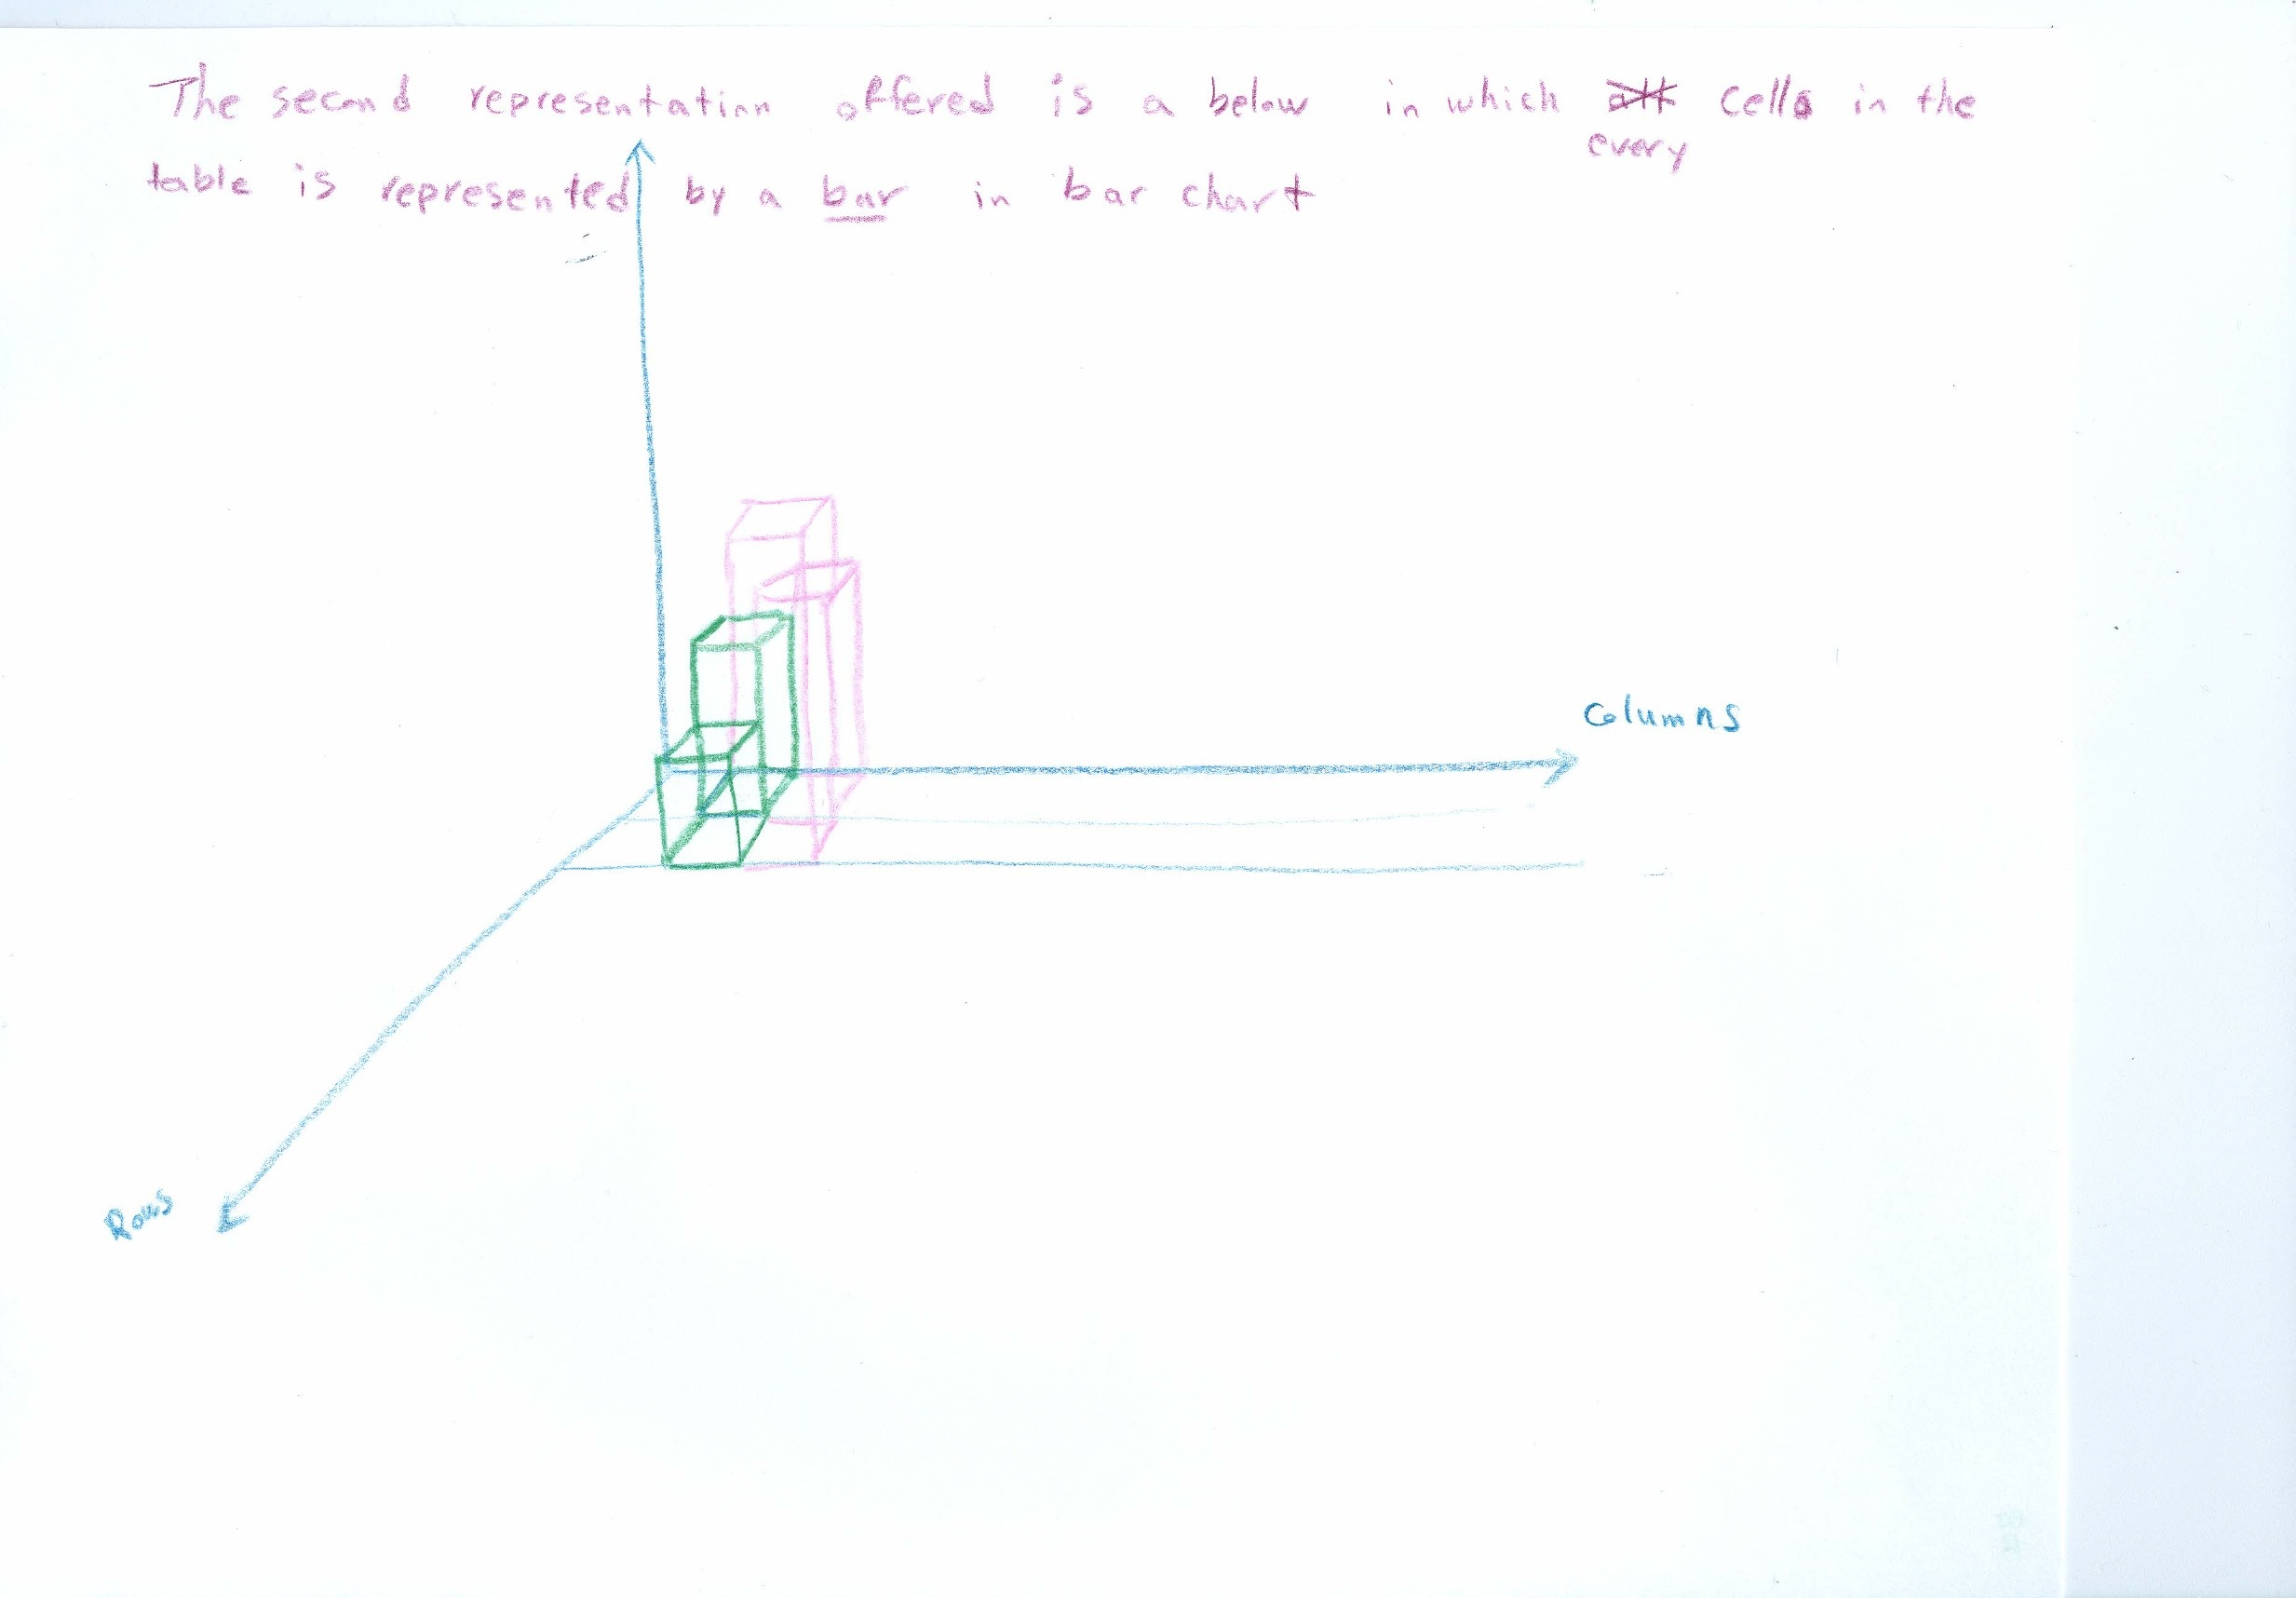 The second representation offered is a below in which all cells in the
every
table is represented by a bar in bar chart
Columns
Rows